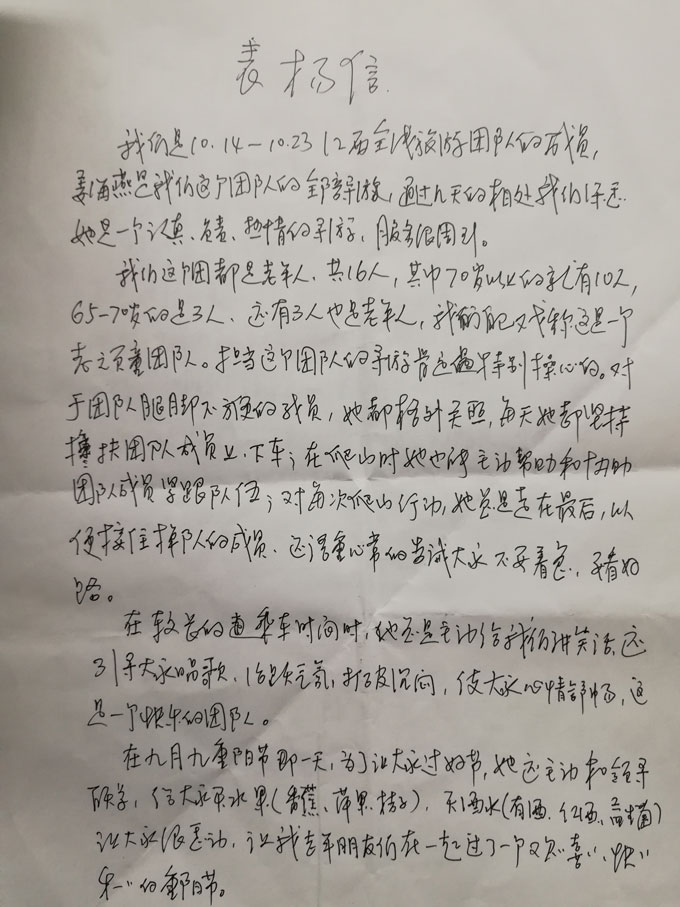 表扬信
我们是10.14—10.23 12届全线旅游团队的成员,
姜海燕是我们这个团队的全陪导游,通过九天的相处我们
她是一个认真、负责、热情的导游,服务很周到。
我们这个团都是老年人,共16人,其中70岁以上的就有10人,
65-70岁的是3人,还有3人也是老年人,我们戏称这是一个
老之团队。担当这个团队的导游肯定是特别操心的。对
于团队腿脚不方便的成员,她都格外关照,每天她都坚持
搀扶团队成员上、下车;在爬山时她也主动帮助和协助
团队成员紧跟队伍;对每次爬山行动,她总是走在最后,以
便接住掉队的成员,还语重心常的告诫大家不要着急,看好
路。
在较长的乘车时间时,她还是主动给我们讲笑话,还
引导大家唱歌,活跃气氛,打破沉闷,使大家心情舒畅,这
是一个快乐的团队。
在九月九重阳节那一天,为了让大家过好节,她还主动和领导
联系,给大家买水果(香蕉、苹果、桔子),买酒水(有酒、红酒、)
让大家很感动,让我老年朋友们在一起过了一个又“喜”、“快
乐”的重阳节。